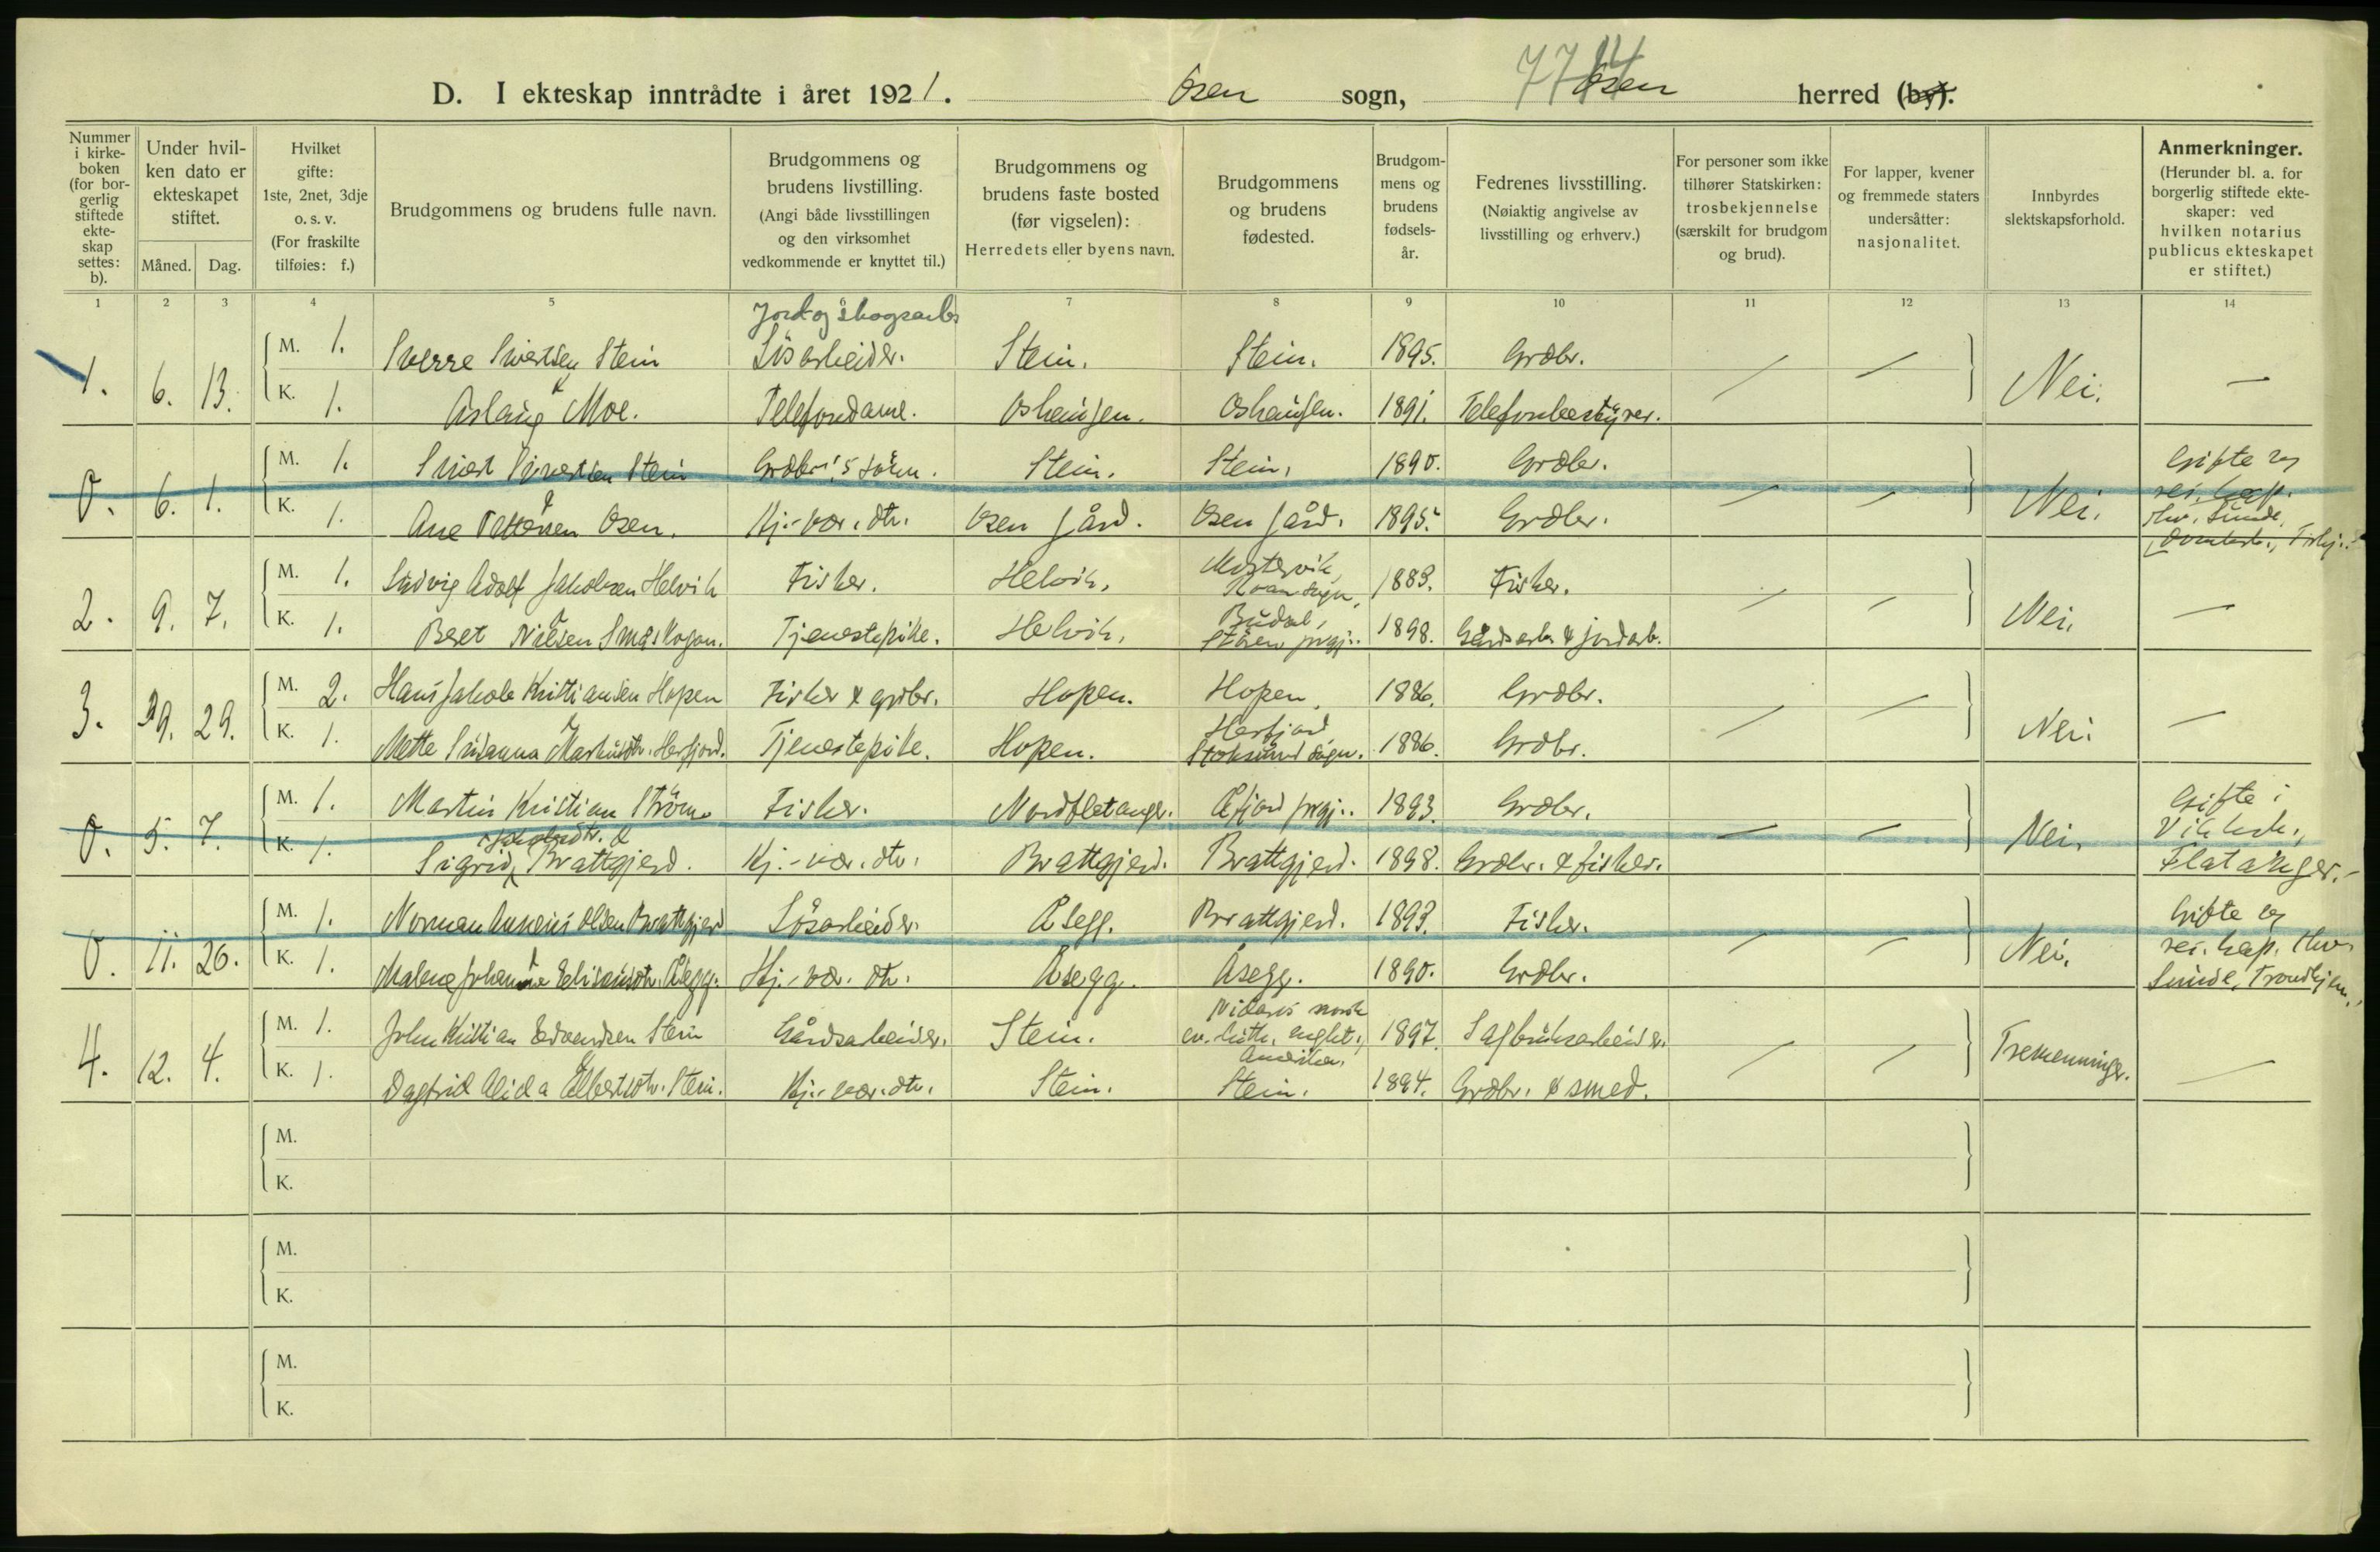 D. I ekteskap inntrådte i året 1921. Osen sogn, Osen herred (by).
7714
Nummer i kirkeboken (for borgerlig stiftede ekteskap settes: b).
Under hvilken dato er ekteskapet stiftet.
Måned. Dag.
Hvilket gifte: 1ste, 2net, 3dje o. s. v. (For fraskilte tilføies: f.)
Brudgommens og brudens fulle navn.
Brudgommens og brudens livstilling. (Angi både livsstillingen og den virksomhet vedkommende er knyttet til.)
Brudgommens og brudens faste bosted (før vigselen): Herredets eller byens navn.
Brudgommens og brudens fødested.
Brudgommens og brudens fødselsår.
Fedrenes livsstilling. (Nøiaktig angivelse av livsstilling og erhverv.)
For personer som ikke tilhører Statskirken: trosbekjennelse (særskilt for brudgom og brud).
For lapper, kvener og fremmede staters undersåtter: nasjonalitet.
Innbyrdes slektskapsforhold.
Anmerkninger. (Herunder bl. a. for borgerlig stiftede ekteskaper: ved hvilken notarius publicus ekteskapet er stiftet.)
1 2 3 4 5 6 7 8 9 10 11 12 13 14
Jord og skogsarb.
1. 6. 13. M. 1. Sverre Sivertsen Stein Løsarbeider. Stein. Stein. 1895. Grdbr. / / Nei. —
K. 1. & Aslaug Moe. Telefondame. Oshaugen. Oshaugen. 1891. Telefonbestyrer.
0. 6. 1. M. 1. Sivert Sivertsen Stein Grdbr's sønn. Stein. Stein. 1890. Grdbr. / / Nei. Gifte ved res. kap. Thv. Sunde,
K. 1. & Ane Osen. Hj.-vær. dtr. Osen gård. Osen gård. 1895. Grdbr.
2. 9. 7. M. 1. Ludvig Adolf Jakobsen Helvik Fisker. Helvik. Roan sogn, 1883. Fisker. / / Nei. —
K. 1. & Beret Nilsen Småskogan. Tjenestepike. Helvik. Budal, Støren prgj. 1898. Gårdsarb. & jordarb.
3. 9. 29. M. 2. Hans Jakob Kristiansen Hopen Fisker & grdbr. Hopen. Hopen. 1886. Grdbr. / / Nei. —
K. 1. & Mette Susanna Markusdtr. Herfjord. Tjenestepike. Hopen. Herfjord Stoksund sogn. 1886. Grdbr.
0. 5. 7. M. 1. Martin Kristian Strøm Fisker. Nordflatanger. Åfjord prgj. 1893. Grdbr. / / Nei. Gifte i Vik kirke, Flatanger.
K. 1. Sigrid Jakobsdtr. & Brattgjerd. Hj.-vær. dtr. Brattgjerd. Brattgjerd. 1898. Grdbr. & fisker.
0. 11. 26. M. 1. Norman Olsen Brattgjerd Løsarbeider. Åsegg. Brattgjerd. 1893. Fisker. / / Nei. Gifte ved res. kap. Thv. Sunde, Trondhjem.
K. 1. & Malene Johanna Elisausdtr. Åsegg. Hj.-vær. dtr. Åsegg. Åsegg. 1890. Grdbr.
4. 12. 4. M. 1. John Kristian Edvardsen Stein Gårdsarbeider. Stein. Nidaros norsk ev. luth. Amerika. 1897. Sagbruksarbeider. / / Tremenninger. —
K. 1. & Dagfrid Alida Elbertsdtr. Stein. Hj.-vær. dtr. Stein. Stein. 1894. Grdbr. & smed.
M.
K.
M.
K.
M.
K.